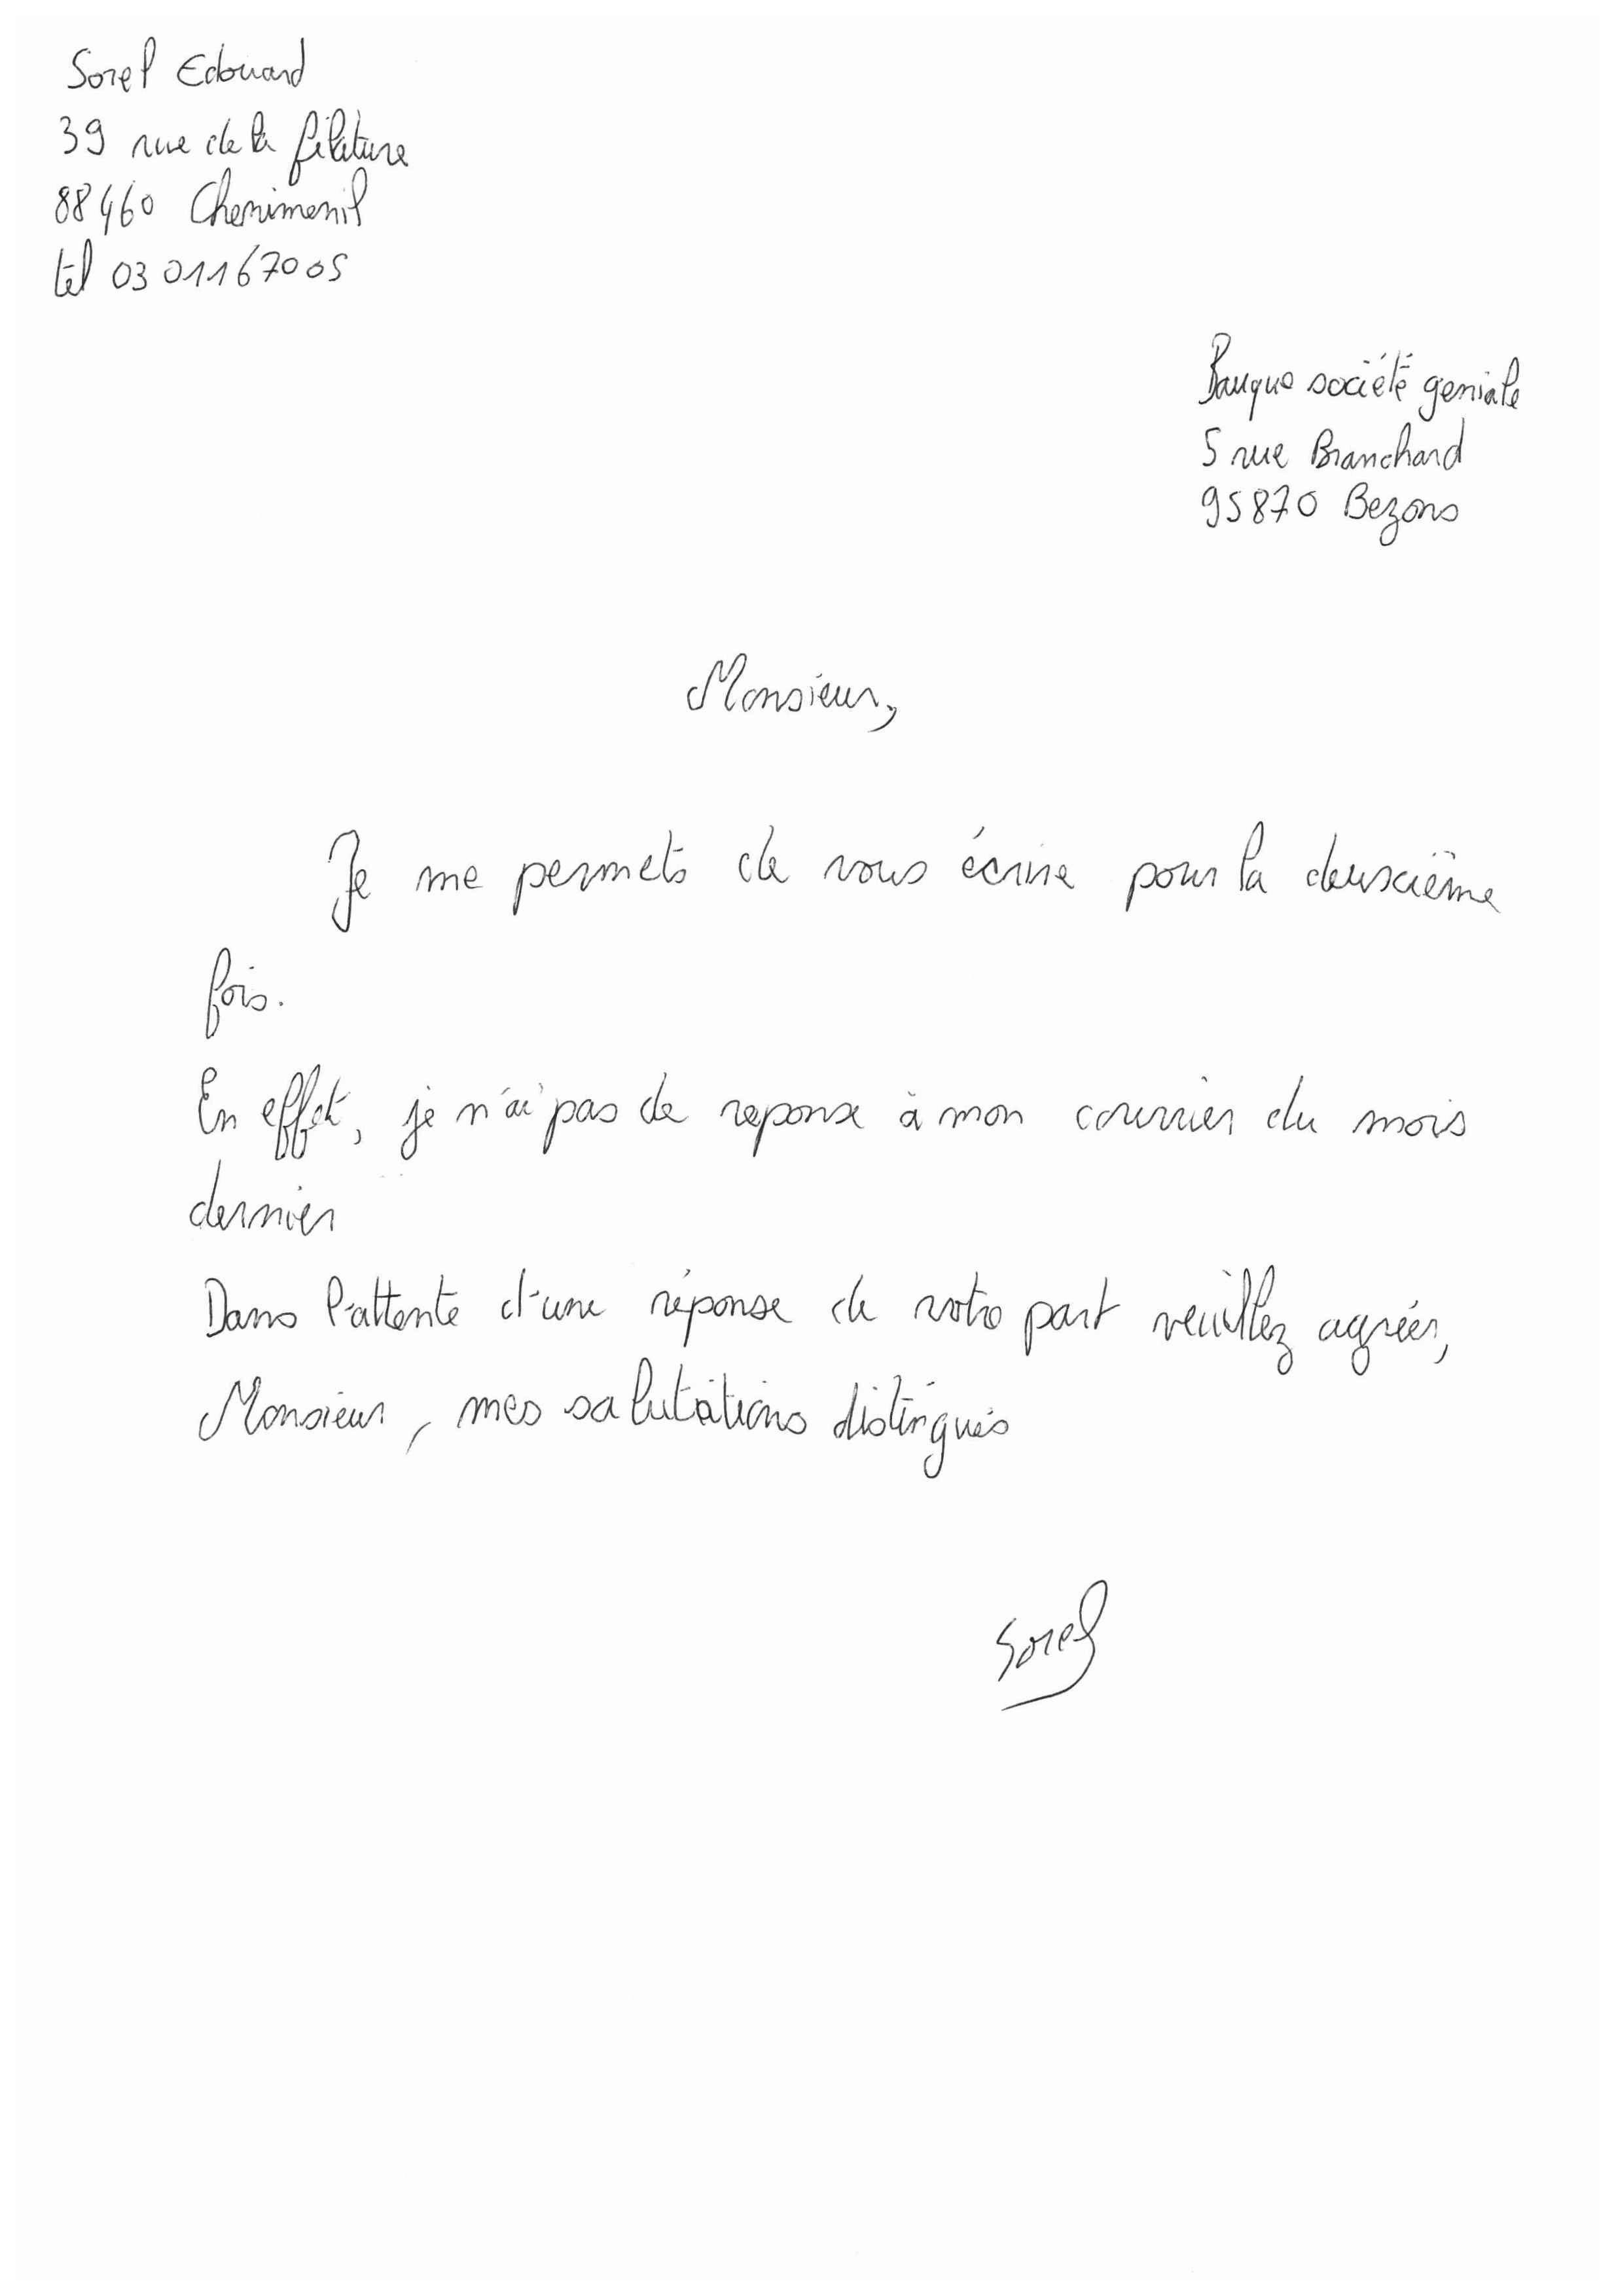 Sorel Edouard
39 rue de la filature
88460 Chenimenil
tel 03 01167005
Banque société geniale
5 rue Branchard
95870 Bezons
Monsieur,
Je me permets de vous écrire pour la deuxième
fois.
En effet, je n'ai pas de reponse à mon courrier du mois
dernier
Dans l'attente d'une réponse de votre part veuillez agréer,
Monsieur, mes salutations distingués
Sorel